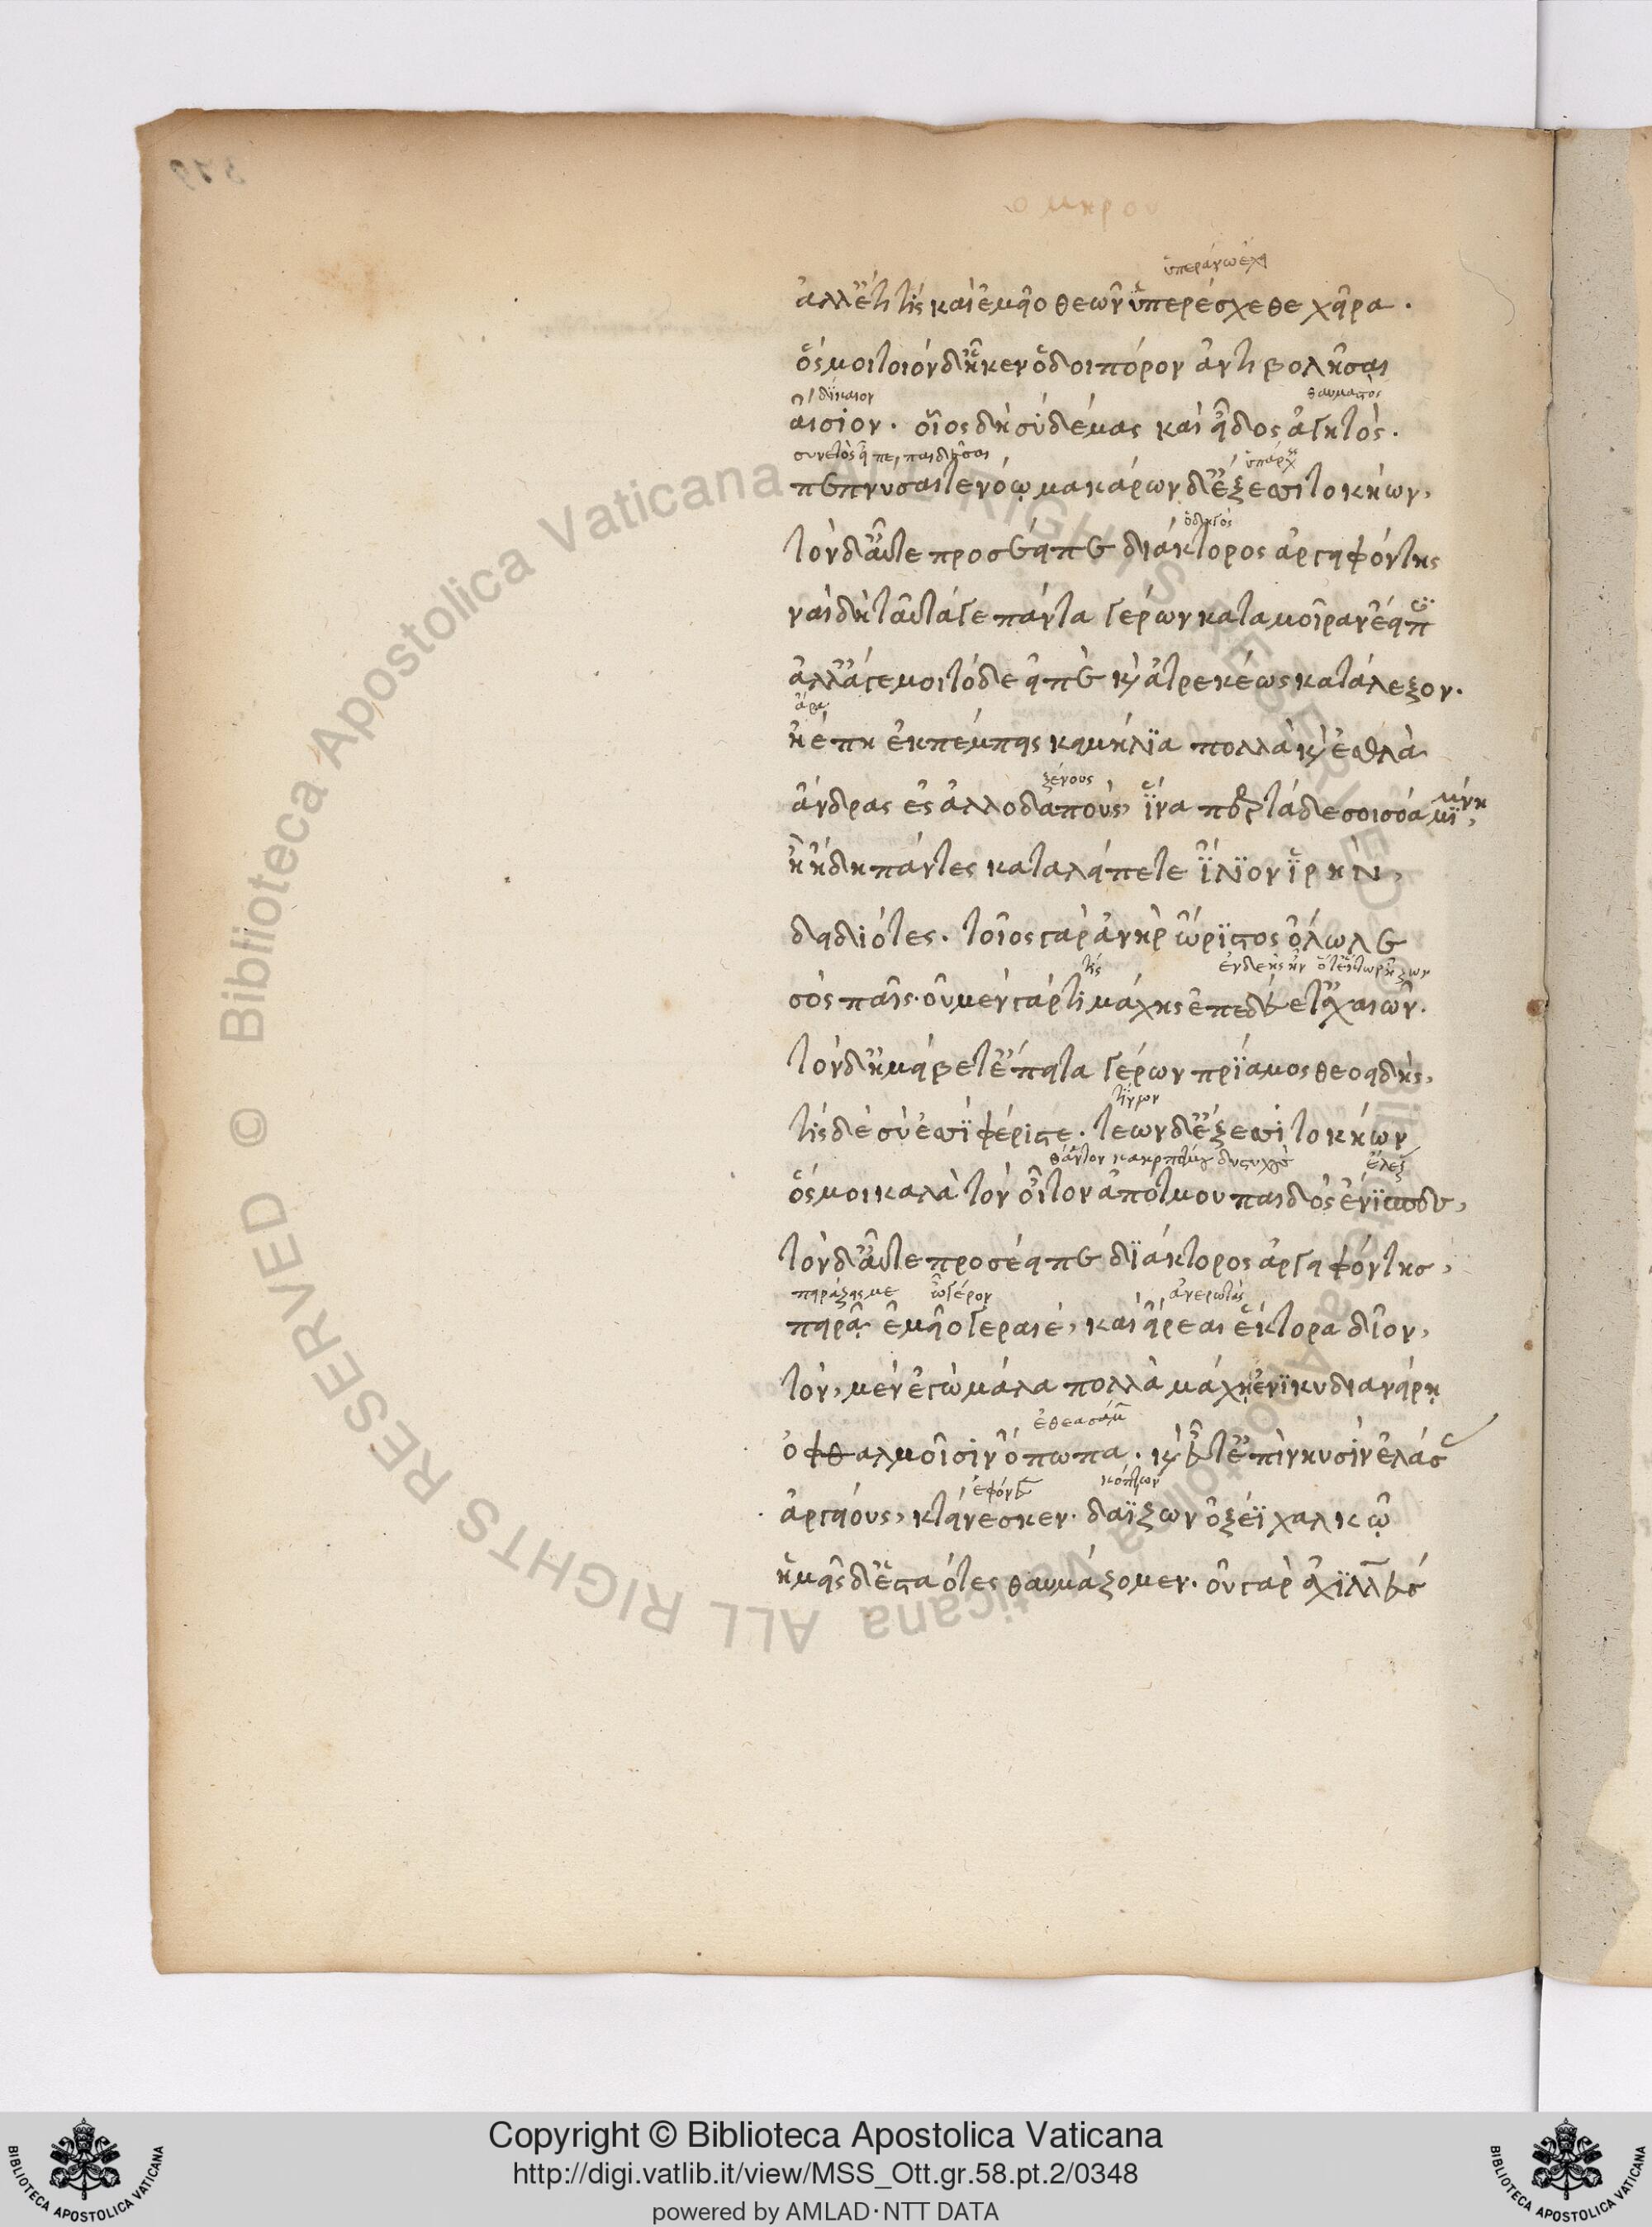 ομηρου
ὑπεράνω ἔχει
ἀλλ' ἔτι τίς καὶ ἐμεῖο θεῶν ὑπερέσχεθε χεῖρα.
ὅς μοι τοιόνδ' ἧκεν ὁδοιπόρον ἀντιβολῆσαι
δίκαιον θαυμαστὸς
αἴσιον. οἷος δὴ σὺ δέμας καὶ εἶδος ἀγητὸς.
ὑπάρχεις
πέπνυσαί τε νόῳ μακάρων δ' ἔξεσσι τοκήων,
ὁδηγὸς
τὸν δ' αὖτε προσέειπε διάκτορος ἀργειφόντης
ναὶ δὴ ταῦτά γε πάντα γέρων κατα μοῖραν ἔειπες
ἀλλ' ἄγε μοι τόδε εἰπὲ καὶ ἀτρεκέως κατάλεξον.
ἄρα
ἠέ πη ἐκπέμπεις κειμήλϊα πολλὰ καὶ ἐσθλὰ
ξένους
ἄνδρας ἐς ἀλλοδαπούς, ἵνα περ τάδε σοι σόα μίμνη,
ἢ ἤδη πάντες καταλείπετε ἴλϊον ἱρὴν,
δειδιότες. τοῖος γὰρ ἀνὴρ ὤριστος ὄλωλε
τίς
σὸς παῖς. οὐ μὲν γάρ τι μάχης ἐπεδεύετ' ἀχαιῶν.
τὸν δ' ἠμείβετ' ἔπειτα γέρων πρίαμος θεοειδὴς,
τίνων
τίς δὲ σὺ ἐσσὶ φέριστε. τέων δ' ἔξεσσι τοκήων
θάνατον
ὅς μοι καλὰ τὸν οἶτον ἀπότμου παιδὸς ἔνισπες,
τὸν δ' αὖτε προσέειπε διάκτορος ἀργειφόντησ,
πειράζεις με ὦ γέρον ἀνερωτᾷς
πειρᾷ ἐμεῖο γεραιέ, καὶ εἴρεαι ἕκτορα δῖον,
τὸν, μὲν ἐγὼ μάλα πολλὰ μάχῃ ἔνι κυδιανείρῃ
ἐθεασάμην
ὀφθαλμοῖσιν ὄπωπα. καὶ εὖτ' ἐπὶ νηυσὶν ἐλάσσας
κόπτων
ἀργείους, κτείνεσκεν. δαΐζων ὀξέϊ χαλκῷ
ἡμεῖς δ' ἑσταότες θαυμάζομεν. οὐ γὰρ ἀχιλλεύσ
Copyright © Biblioteca Apostolica Vaticana
http://digi.vatlib.it/view/MSS_Ott.gr.58.pt.2/0348
powered by AMLAD·NTT DATA